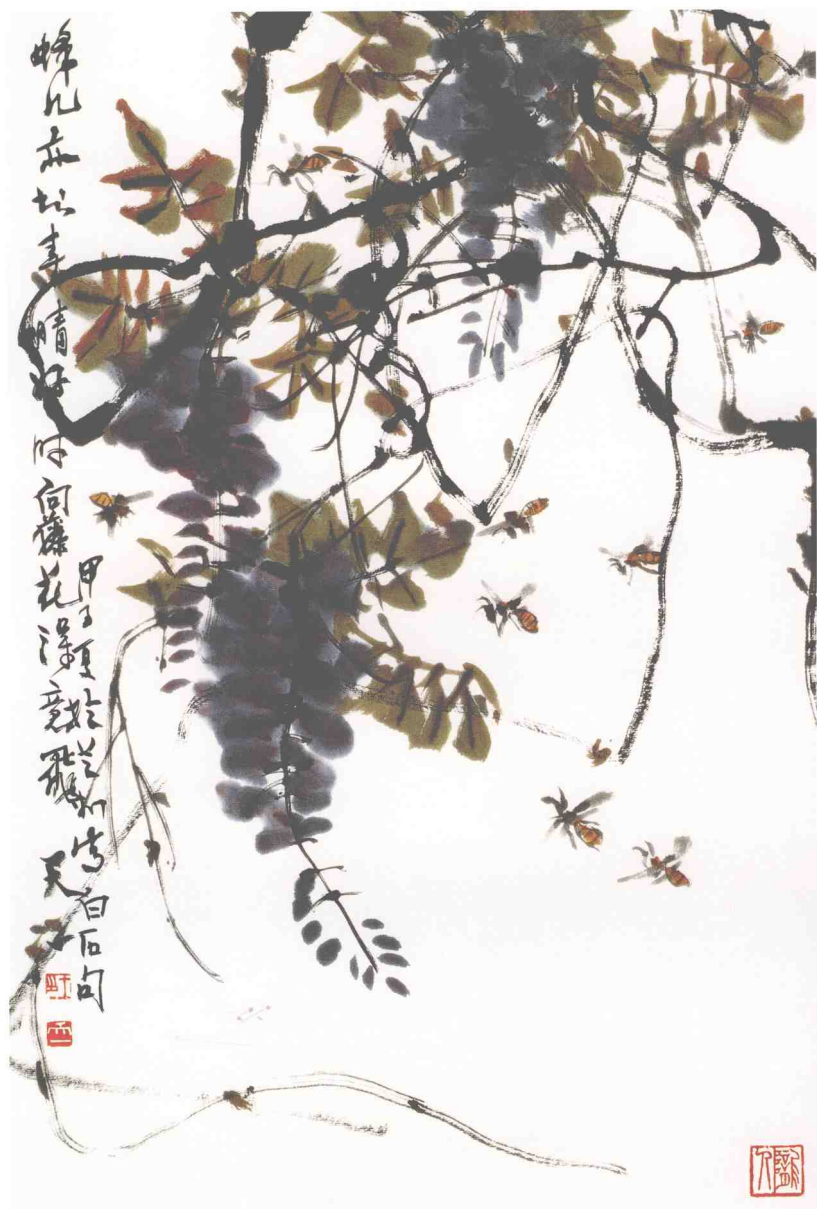 蜂儿亦知春晴好时向藤花深竟飞
甲子夏於兰州写白石句
天一